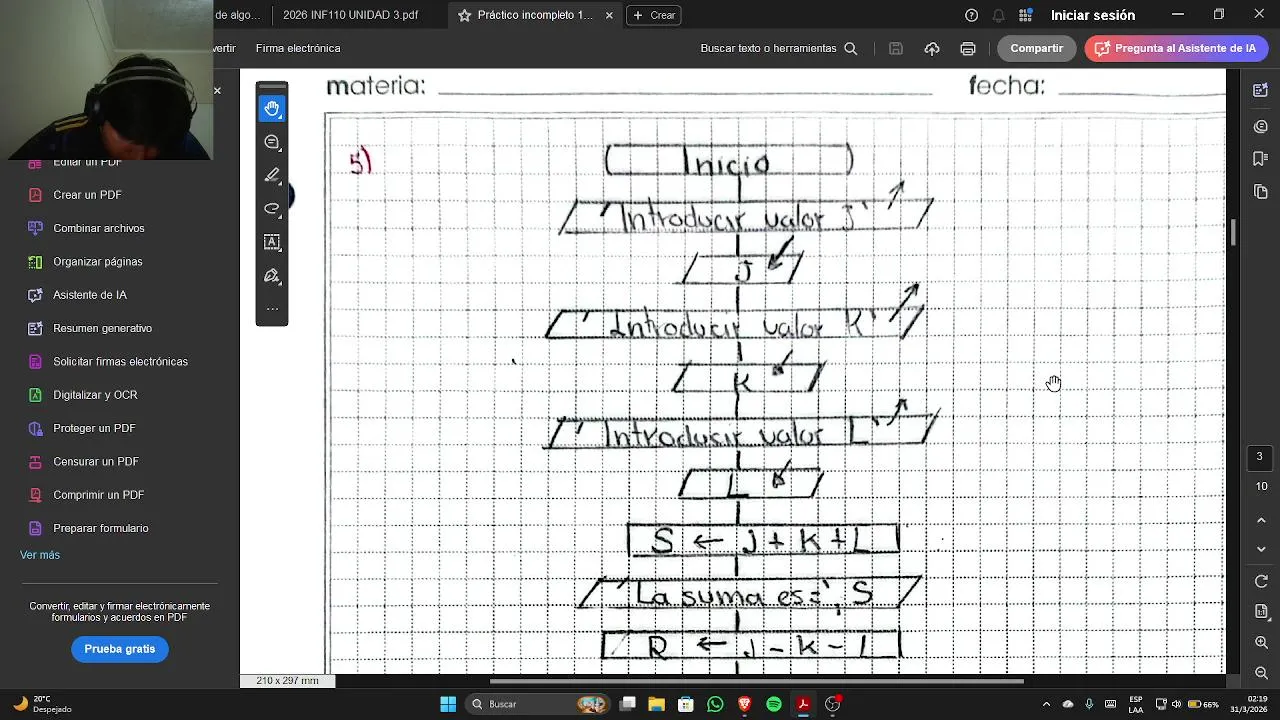 de algo...
2026 INF110 UNIDAD 3.pdf
Práctico incompleto 1...
Crear
Iniciar sesión
vertir
Firma electrónica
Buscar texto o herramientas
Compartir
Pregunta al Asistente de IA
Editar un PDF
Crear un PDF
Organizar páginas
Asistente de IA
Resumen generativo
Solicitar firmas electrónicas
Digitalizar y OCR
Proteger un PDF
Censurar un PDF
Comprimir un PDF
Preparar formulario
Ver más
Convertir, editar y firmar electrónicamente
formularios y acuerdos en PDF
Prueba gratis
materia:
fecha:
5)
Inicio
'Introducir valor j'
J
'Introducir valor K'
K
'Introducir valor L'
L
S ← J + K + L
'La suma es=', S
R ← J - K - L
3
10
210 x 297 mm
20°C
Despejado
Buscar
ESP
LAA
66%
02:15
31/3/2026